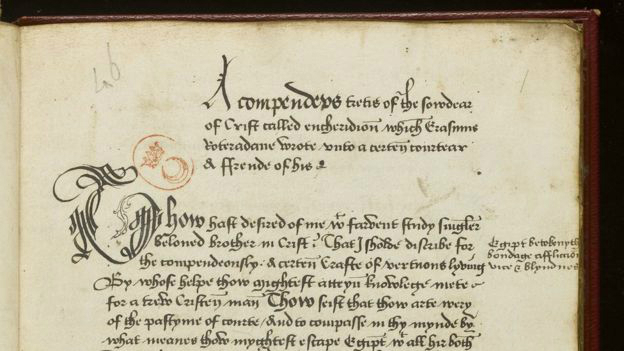 A compendeus tretis of the sowdear
of Crist called encheridion which Erasmus
Roteradane wrote vnto a certen courtear
& ffrende of his
Thow hast desired of me wt farvent study singler
beloved brother in Crist : That I showde discribe for
the compendeously / A certen Crafte of vertuous lyving
By whose helpe thow myghtest atteyn knowlege mete
for a trew Cristen man Thow seist that thow arte wery
of the pastyme of courte / And to compasse in thy mynde by
what meanes thow myghtest escape Egipt wt all hir both
Egipt betokenyth
bondage affliccion
vice & blyndnes